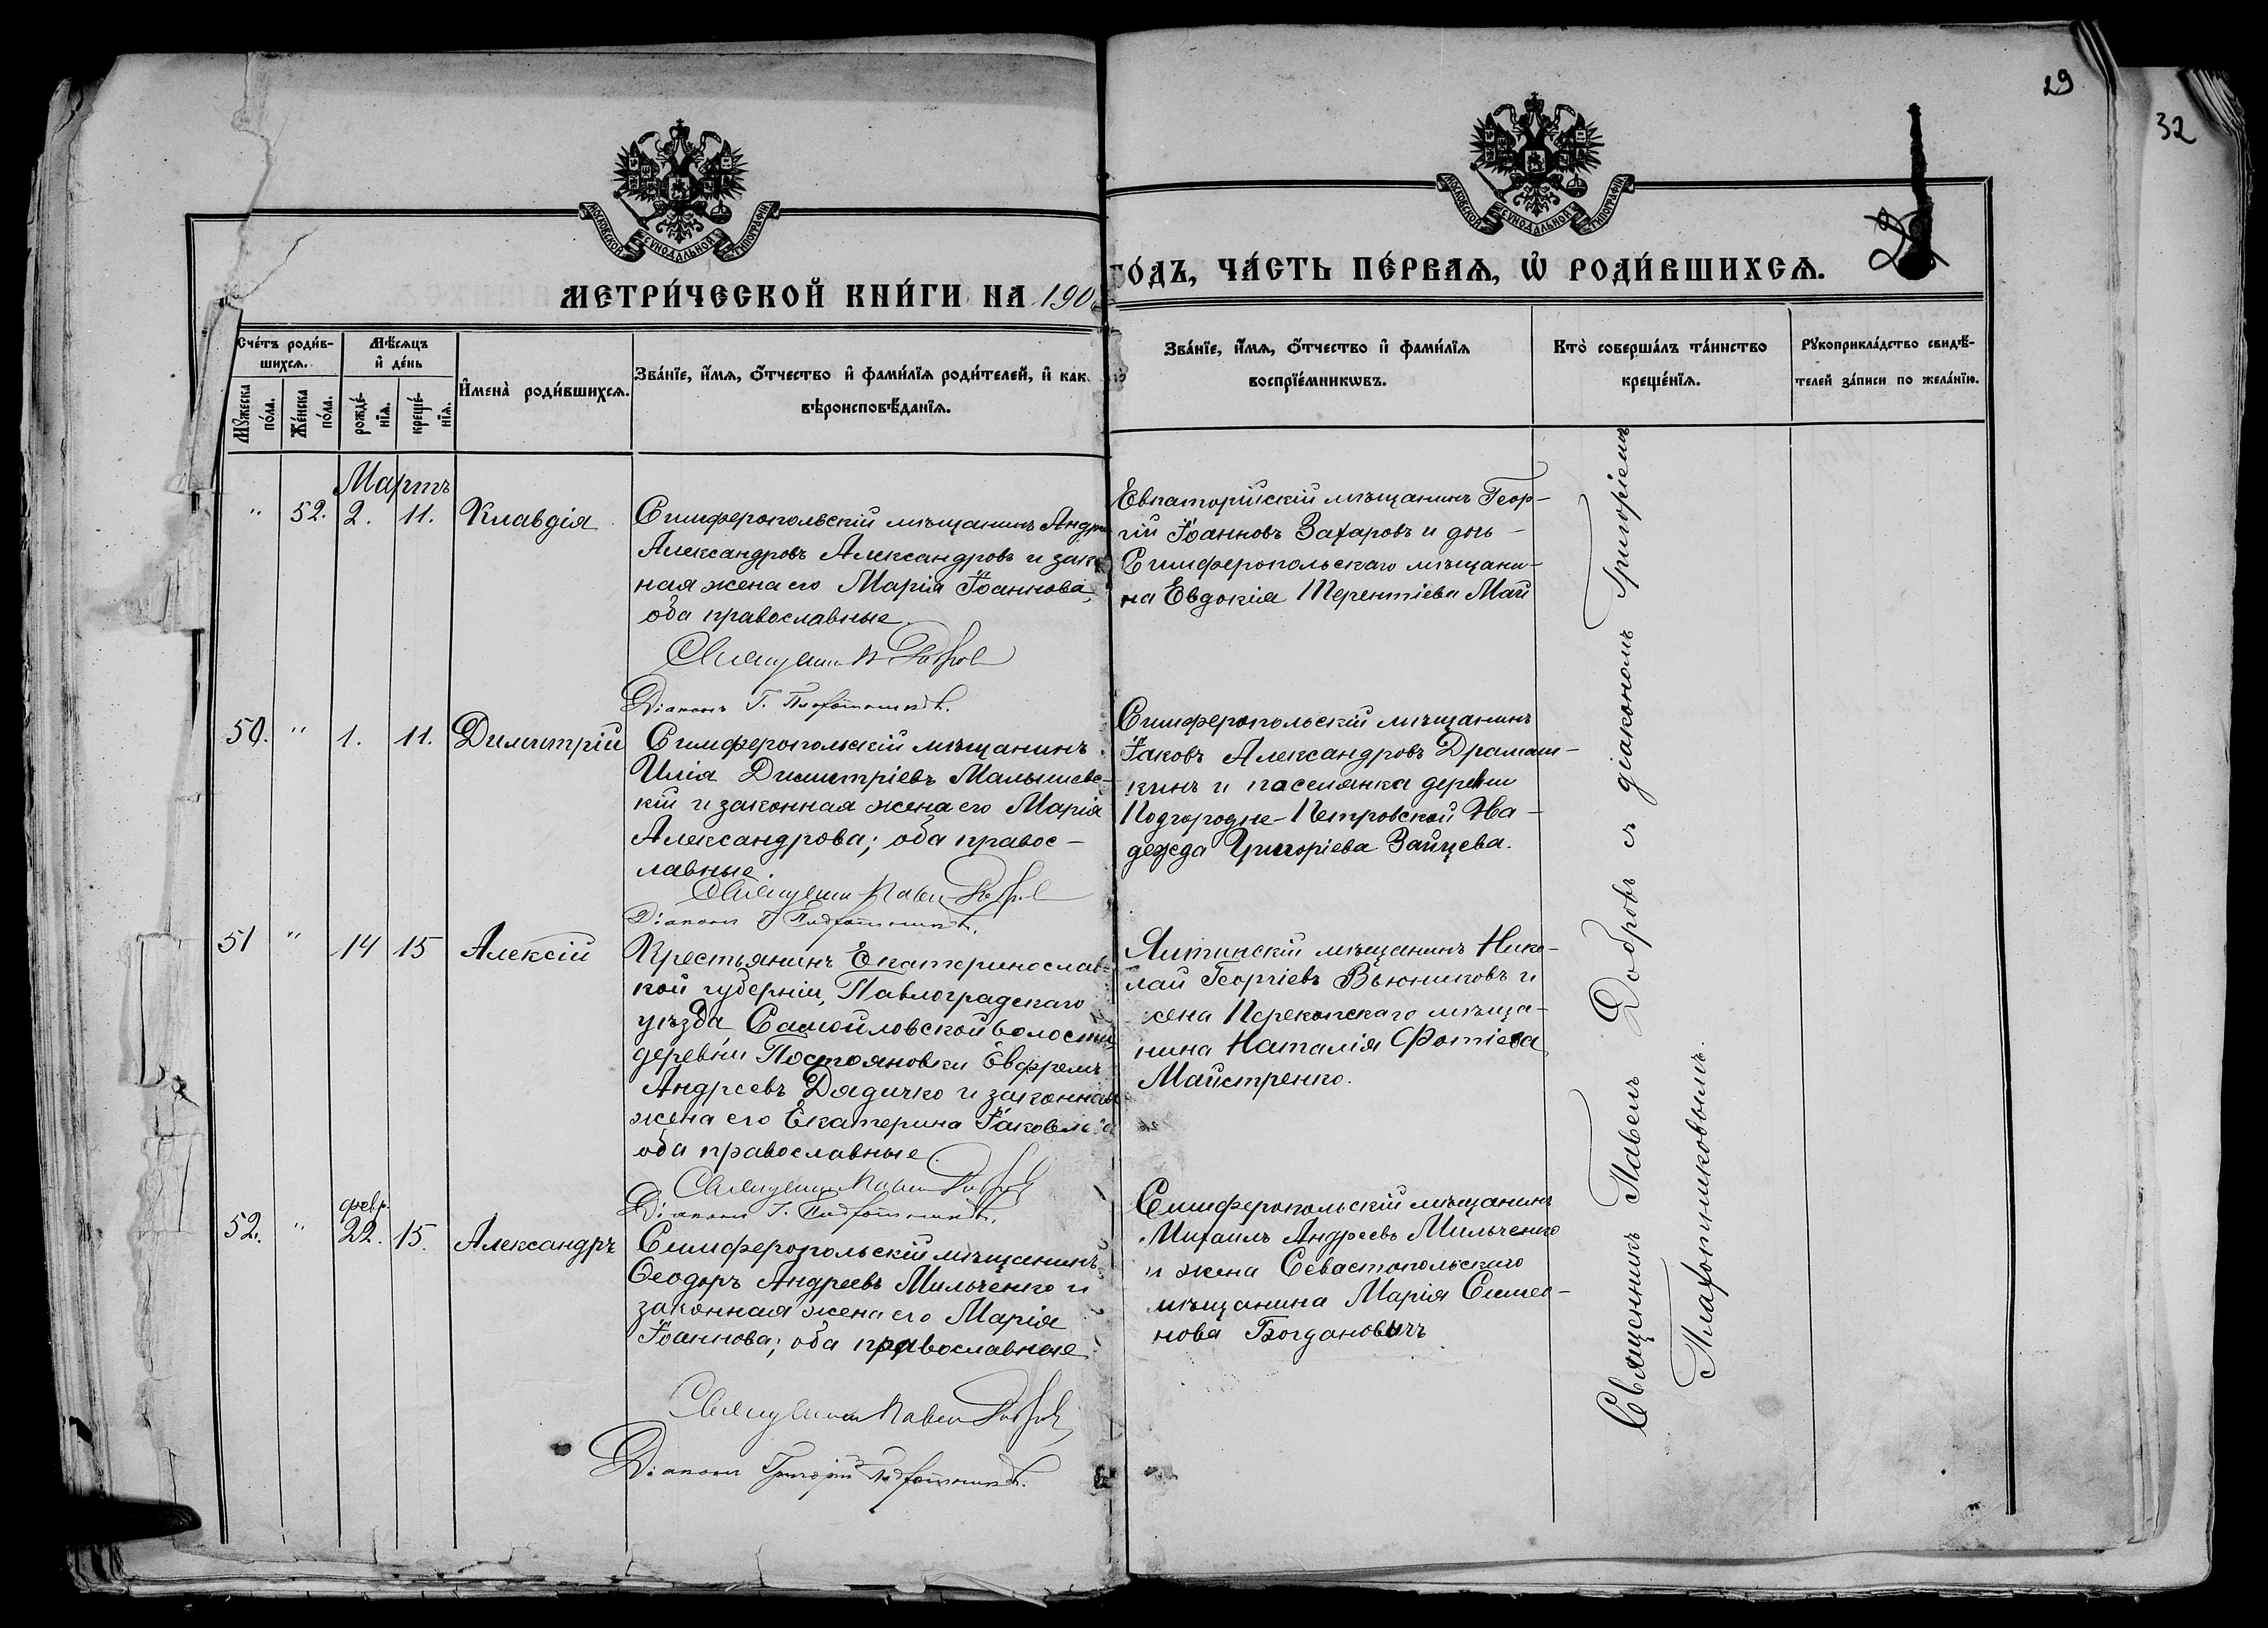 29
32
МОСКОВСКОЙ СѴНОДАЛЬНОЙ ТИПОГРАФІИ
МОСКОВСКОЙ СѴНОДАЛЬНОЙ ТИПОГРАФІИ
МЕТРИ́ЧЕСКОЙ КНИ́ГИ НА 190
ГО́ДЪ, ЧА́СТЬ ПЕ́РВАѦ, Ѡ҆ РОДИ́ВШИХСѦ.
Сче́тъ роди́в-
шихсѧ.
Мꙋ́жеска
по́ла.
Же́нска
по́ла.
Мѣ́сяцъ
и҆ де́нь
рожде́-
нїѧ.
креще́-
нїѧ.
И҆мена̀ роди́вшихсѧ.
Зва́нїе, и҆́мѧ, ѻ҆́тчество и҆ фами́лїѧ роди́телей, и҆ как
вѣроисповѣ́данїѧ.
Зва́нїе, и҆́мѧ, ѻ҆́тчество и҆ фами́лїѧ
воспрїе́мникѡвъ.
Кто̀ соверша́лъ та́инство
креще́нїѧ.
Рꙋкоприкла́дство свидѣ́-
телей за́писи по жела́нїю.
Мартъ
" 52. 2. 11. Клавдія
Симферопольскій мѣщанинъ Андре
Александровъ Александровъ и зако
ная жена его Марія Іоаннова,
оба православные.
Священникъ П Добровъ
Діаконъ Г. Плахотниковъ.
Евпаторійскій мѣщанинъ Геор-
гій Іоанновъ Захаровъ и дочь
Симферопольскаго мѣщани-
на Евдокія Терентіева Май
50. " 1. 11. Димитрій
Симферопольскій мѣщанинъ
Илія Димитріевъ Малышевс-
кій и законная жена его Марія
Александрова; оба правос-
лавные.
Священникъ Павелъ Добровъ
Діаконъ Г Плахотниковъ.
Симферопольскій мѣщанинъ
Іаковъ Александровъ Драмаш-
кинъ и поселянка деревни
Подгородне-Петровской На-
дежда Григоріева Зайцева.
51 " 14 15 Алексій
Крестьянинъ Екатеринослав-
кой губерніи, Павлоградскаго
уѣзда Самойловской волости,
деревни Постояновки Евфремъ
Андреевъ Дядичко и законная
жена его Екатерина Іаковлева
оба православные.
Священникъ Павелъ Добровъ
Діаконъ Г. Плахотниковъ.
Ялтинскій мѣщанинъ Нико-
лай Георгіевъ Вьюниковъ и
жена Перекопскаго мѣща-
нина Наталія Фотіева
Майстренко.
февр.
52. " 22. 15. Александръ
Симферопольскій мѣщанинъ
Ѳеодоръ Андреевъ Мильченко и
законная жена его Марія
Іоаннова; оба православные
Священникъ Павелъ Добровъ
Діаконъ Григорій Плахотниковъ.
Симферопольскій мѣщанинъ
Михаилъ Андреевъ Мильченко
и жена Севастопольскаго
мѣщанина Марія Симео-
нова Богдановичъ
Священникъ Павелъ Добровъ съ діакономъ Григоріемъ
Плахотниковымъ.